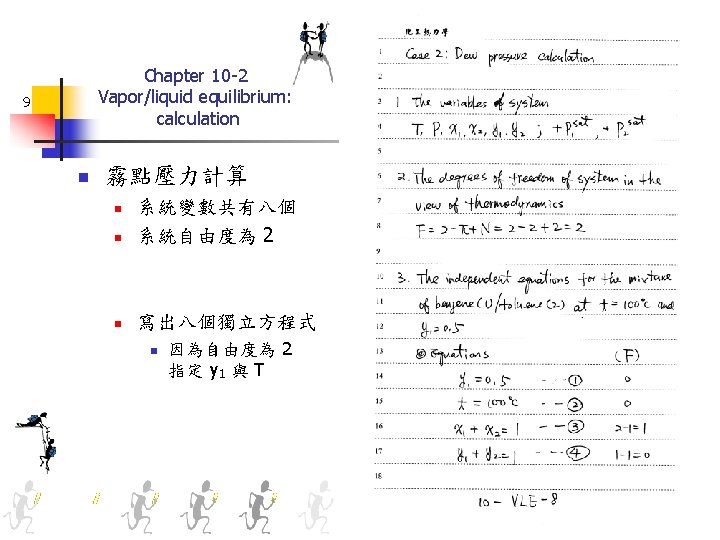 Chapter 10-2
Vapor/liquid equilibrium:
calculation
9
霧點壓力計算
系統變數共有八個
系統自由度為 2
寫出八個獨立方程式
因為自由度為 2
指定 y₁ 與 T
化工熱力學
1 Case 2: Dew pressure calculation
2
3 1 The variables of system
4 T, P, x₁, x₂, y₁, y₂ ; + P₁ˢᵃᵗ + P₂ˢᵃᵗ
5
6 2. The degrees of freedom of system in the
7 view of thermodynamics
8 F = 2-π+N = 2-2+2 = 2
9
10 3. The independent equations for the mixture
11 of benzene(1)/toluene(2) at t=100°C and
12 y₁=0.5
13 ⊚ Equations (F)
14 y₁=0.5 --- ① 0
15 t=100°C --- ② 0
16 x₁+x₂=1 --- ③ 2-1=1
17 y₁+y₂=1 --- ④ 1-1=0
18
10-VLE-8